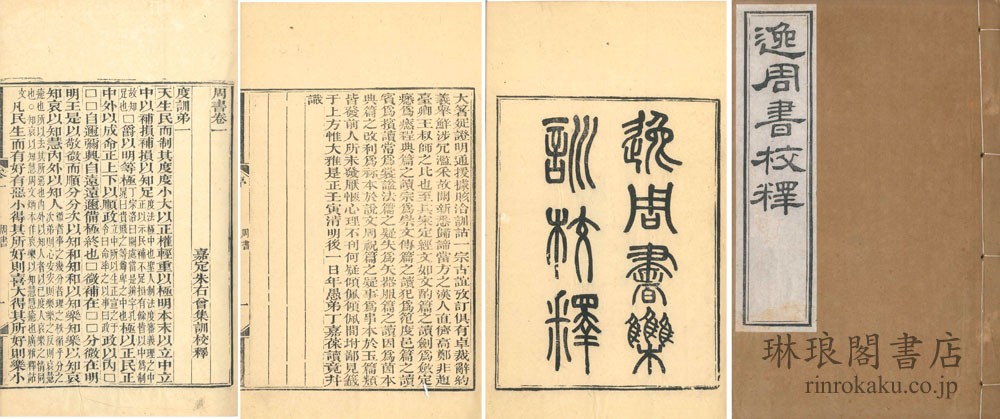 逸周書校釋
逸周書雧
訓校釋
大箸證明通援據賅洽訓詁一宗古誼攷訂俱有卓裁辭約
義舉鮮涉冗濫采故開新悉歸諦當方之漢人直儕高鄭非趙
臺卿王叔師之比也至其定經文如文酌篇之讀劍爲斂定
應爲程典篇之讀宗爲學文傳篇之讀犯爲範度邑篇之讀
賓爲擯讀當爲裳諡法篇之疑失爲矢器服篇之讀因爲茵本
典篇之改利爲物本於說文周祝篇之疑事爲本於玉篇類
皆發前人所未發厭愜心理不刊何疑傾佩傾佩間坿鄙見籤
于上方惟大雅是正壬寅清明後一日年愚弟丁嘉葆讀竟并
識
周書
周書卷一
嘉定朱右曾集訓校釋
度訓弟一
天生民而制其度度小大以正權輕重以極明本末以立中立
中以補損補損以知足
□爵以明等極
中外以成命正上下以順政
□□自邇彌興自遠遠備極終也□微補在□□分微在明
明王是以敬微而順分分次以知和知和以知樂知樂以知哀
知哀以知慧內外以知人
凡民生而有好有惡小得其所好則喜大得其所好則樂小
周書
琳琅閣書店
rinrokaku.co.jp